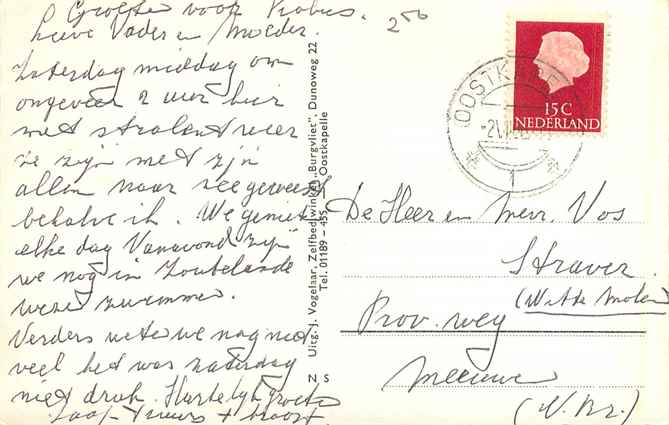 Groeten voor Probus.
Lieve Vader en Moeder.
Zaterdag middag om
ongeveer 2 uur hier
met stralend weer
ze zijn met z'n
allen naar zee geweest
behalve ik. We genieten
elke dag Vanavond zijn
we nog in Zoutelande
wezen zwemmen.
Verders weten we nog niet
veel het was zaterdag
niet druk. Hartelijk groeten
Jaap + +
250
Uitg. J. Vogelaar, Zelfbed.winkel „Burgvliet", Dunoweg 22
Tel. 01189 - 455, Oostkapelle
N S
15 C
NEDERLAND
OOSTK
-2
1
De Heer en Mevr. Vos
Straver
(Witte Molen
Prov. weg
Meeuwen
(N. Br.)